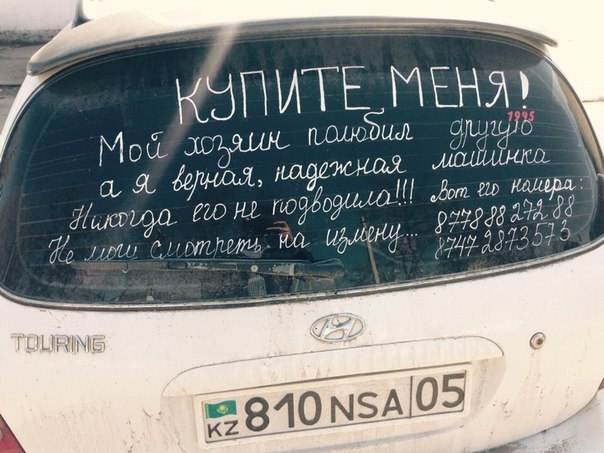 КУПИТЕ МЕНЯ!
1995
Мой хозяин полюбил другую
а я верная, надежная машинка
Никогда его не подводила!!! Вот его номера:
Не могу смотреть на измену... 87788827288
87472873573
TOURING
KZ 810 NSA 05